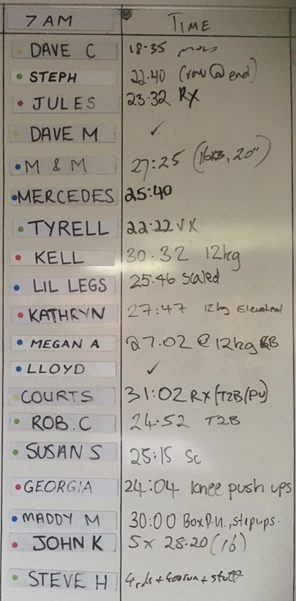 7 AM TIME
DAVE C 18-35
STEPH 22:40 (row @ end)
JULES 23:32 RX
DAVE M ✓
M & M 27:25 (16KB, 20")
MERCEDES 25:40
TYRELL 22:22 RX
KELL 30.32 12kg
LIL LEGS 25:46 Scaled
KATHRYN 27:47 12kg Elevated
MEGAN A 27.02 @ 12kg KB
LLOYD ✓
COURTS 31:02 RX (T2B/PU)
ROB.C 24.52 T2B
SUSAN S 25:15 Sc
GEORGIA 24:04 knee push ups
MADDY M 30:00 Box P.u, stepups.
JOHN K 5x 28.20 (16)
STEVE H 4 rds + 400 run + stuff